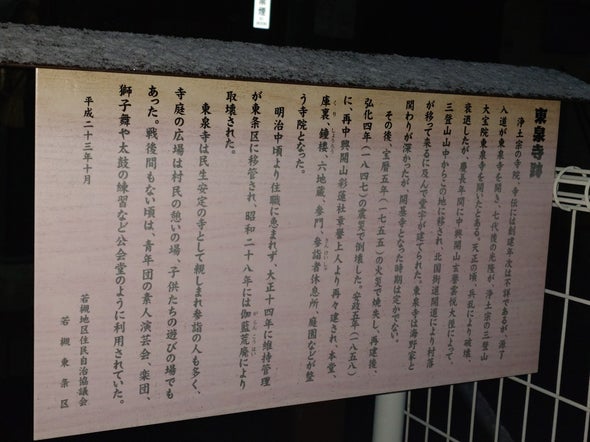 東泉寺跡
浄土宗の寺院、寺伝には創建年次は不詳であるが、源了
入道が東泉寺を開き、七代後の光隆が、浄土宗の三登山
大宝院東泉寺を開いたとある。天正の頃、兵乱により破壊、
衰退したが、慶長年間に中興開山玄誉雲悦大徳によって、
三登山山中からこの地に移され、北国街道開道により村落
が移って来るに及んで堂宇が建てられた。東泉寺は海野家と
関わりが深かったが、開基寺となった時期は定かでない。
その後、宝暦五年(一七五五)の火災で焼失し、再建後、
弘化四年(一八四七)の震災で倒壊した。安政五年(一八五八)
に、再中興開山彩蓮社章誉上人より再々建され、本堂、
庫裏、鐘楼、六地蔵、参門、参詣者休息所、庭園などが整
う寺院となった。
明治中頃より住職に恵まれず、大正十四年に維持管理
が東条区に移管され、昭和二十八年には伽藍荒廃により
取壊された。
東泉寺は民生安定の寺として親しまれ参詣の人も多く、
寺庭の広場は村民の憩いの場、子供たちの遊びの場でも
あった。戦後間もない頃は、青年団の素人演芸会、楽団、
獅子舞や太鼓の練習など公会堂のように利用されていた。
平成二十三年十月
若槻地区住民自治協議会
若槻東条区